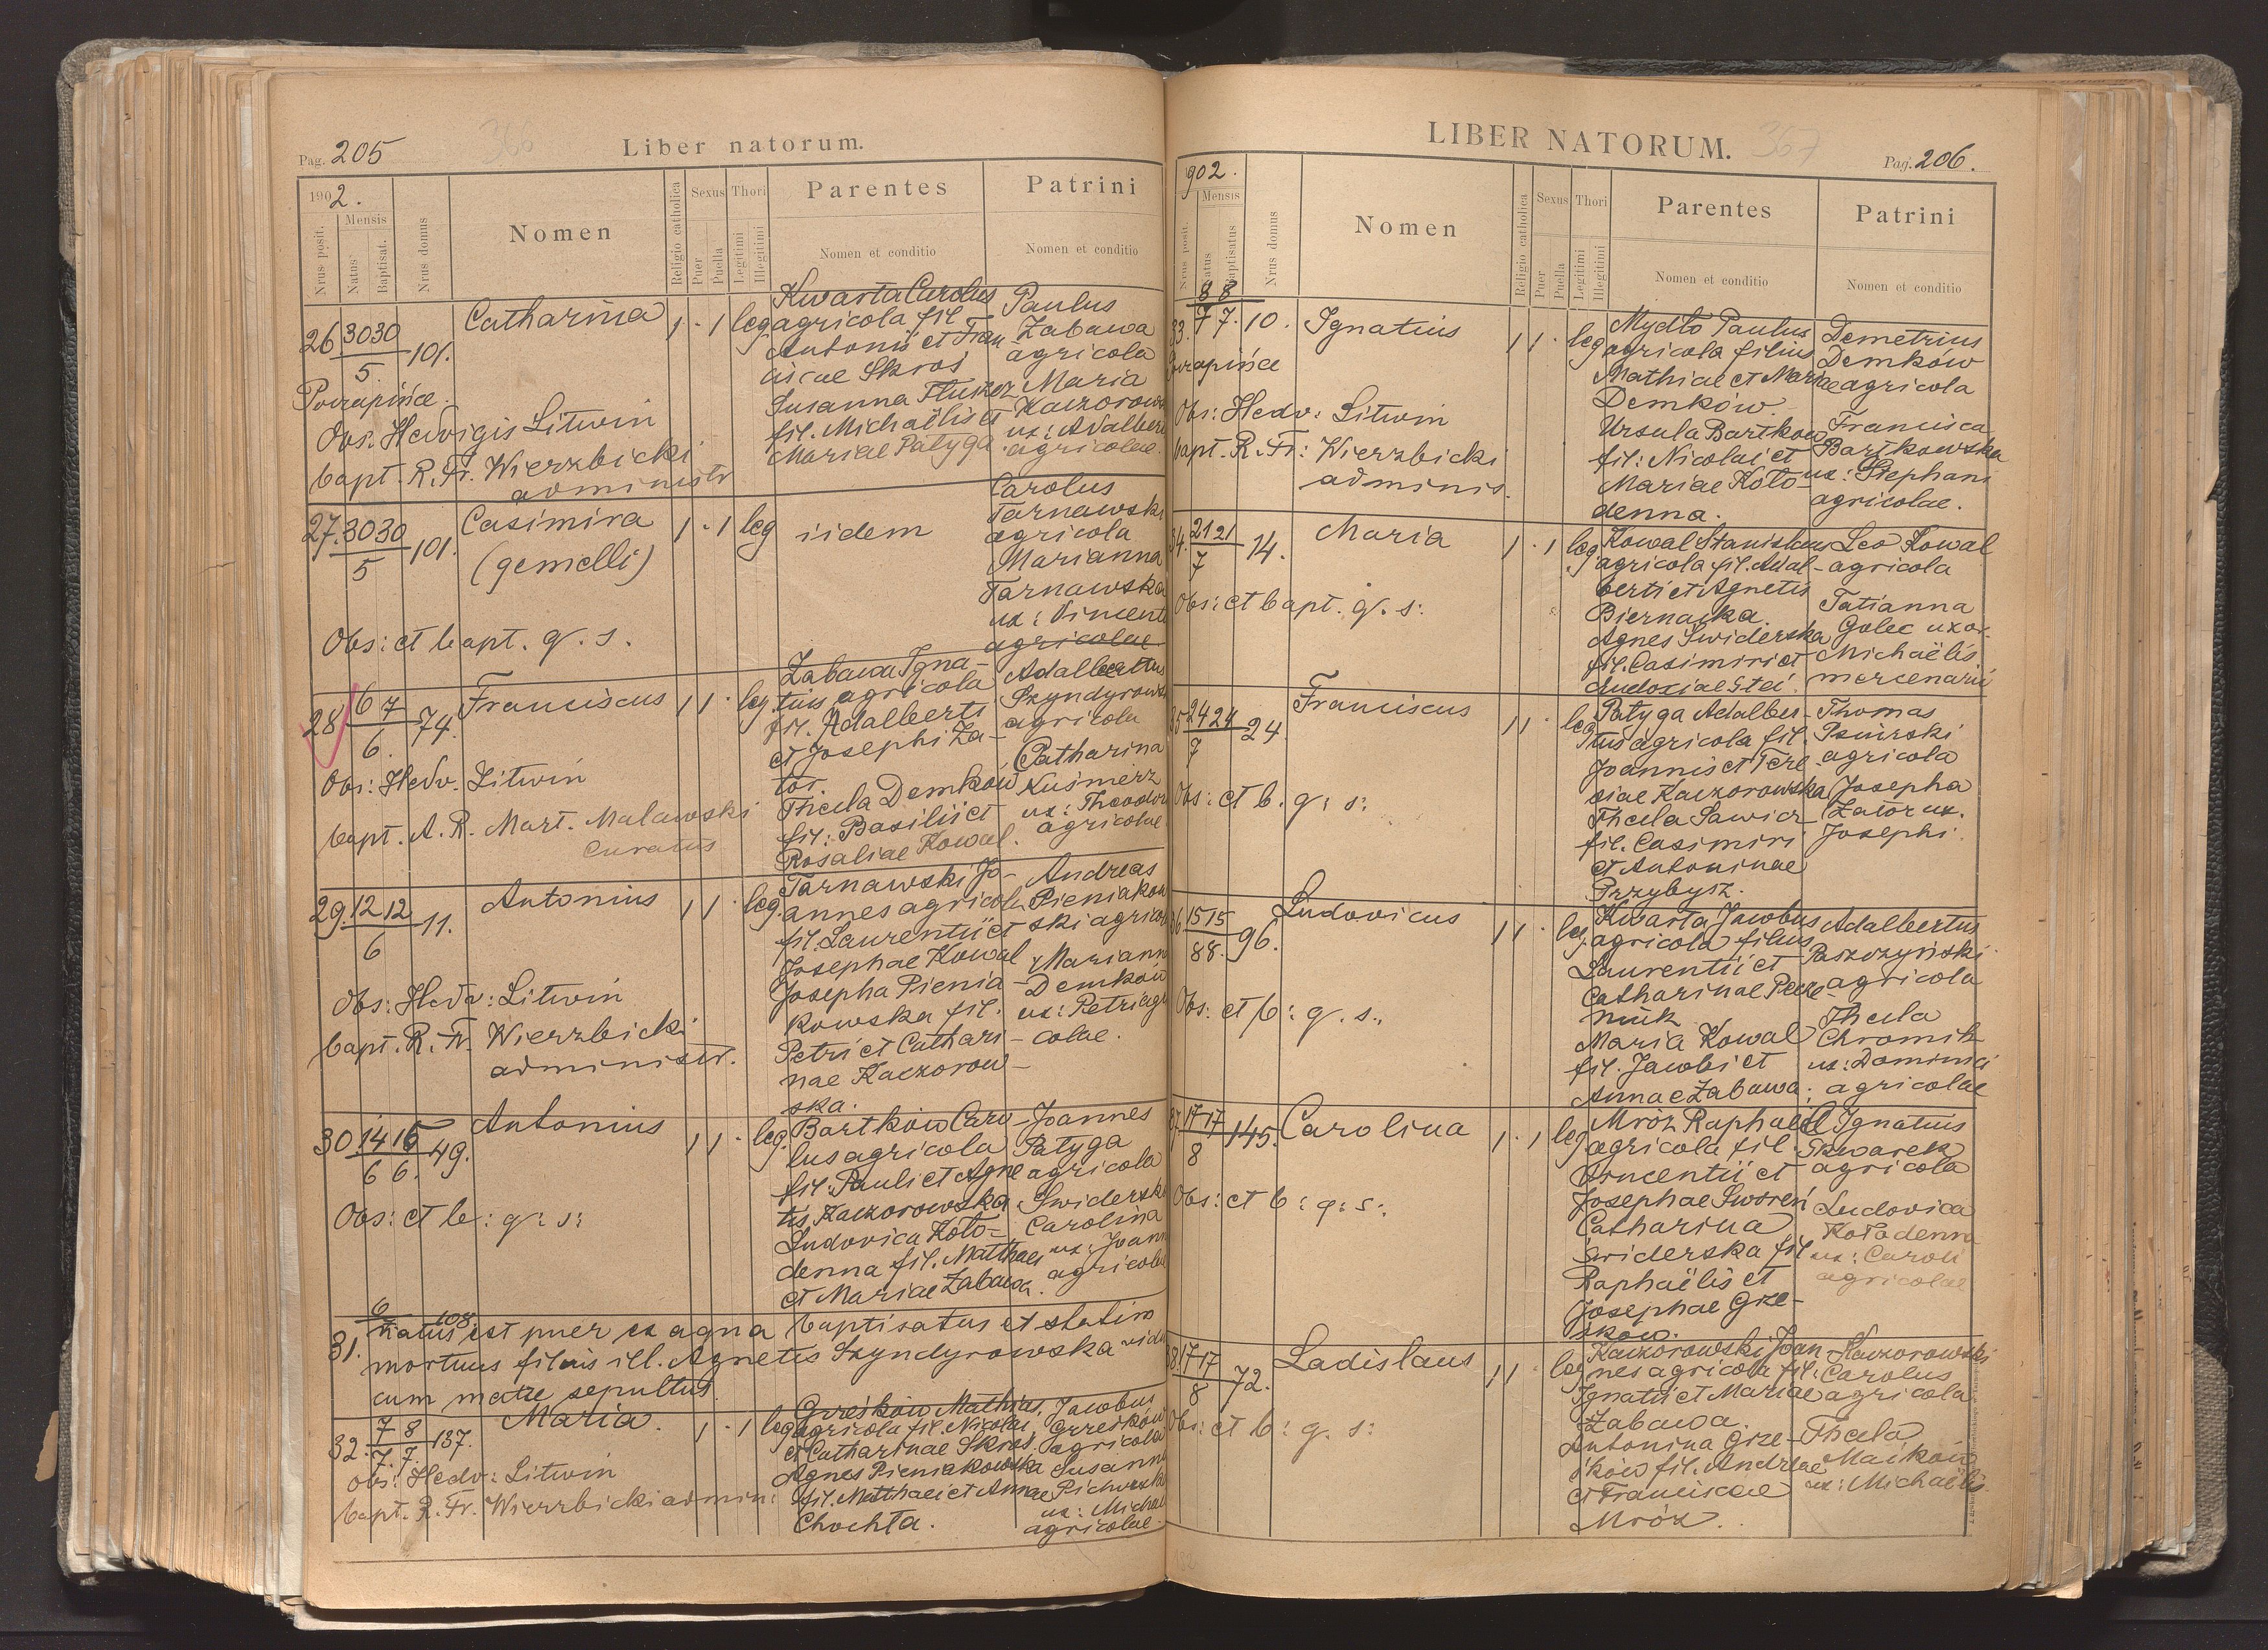 Pag. 205
366
Liber natorum.
1902.
Nrus posit.
Mensis
Natus
Baptisat.
Nrus domus
Nomen
Religio catholica
Sexus
Puer
Puella
Thori
Legitimi
Illegitimi
Parentes
Nomen et conditio
Patrini
Nomen et conditio
26 30 30
5
101.
Powrapińce.
Catharina
1 · 1 leg
Obs. Hedvigis Litwin
bapt. R. Fr. Wierzbicki
administr
Kwarta Carolus
agricola fil
Antonii et Fran-
ciscae Skros
Susanna
fil. Michaëlis et
Mariae Patyga
Paulus
Zabawa
agricola
Maria
Kaczorows
ux: Adalberti
agricolae.
27. 30 30
5
101.
Casimira
(gemelli)
1 · 1 leg
iidem
Carolus
Tarnawski
agricola
Marianna
Tarnawska
ux: Vincenti
agricolae
Obs: et bapt. q. s.
28 6 7
6.
74.
Franciscus
1 1 · leg
Obs: Hedv. Litwin
bapt. A. R. Mart. Malawski
Curatus
Zabawa Igna-
tius agricola
fil. Adalberti
et Josephi Za-
tor.
Thecla Demków
fil: Basilii et
Rosaliae Kowal.
Adalbertus
Szyndyrowsk
agricola
Catharina
Kuśmierz
ux: Theodor
agricolae
29. 12 12
6
11.
Antonius
1 1 · leg.
Obs: Hedv: Litwin
bapt. R. Fr. Wierzbicki
administr.
Tarnawski Jo-
annes agricola
fil. Laurentii et
Josephae Kowal
Josepha Pienia-
kowska fil.
Petri et Cathari-
nae Kaczorow-
ska.
Andreas
Pieniakow
ski agricola
Mariann
Demków
ux: Petri agri
colae.
30. 14 15
6 6.
49.
Antonius
1 1 · leg.
Obs: et b: q: s:
Bartków Caro-
lus agricola
fil: Pauli et Agne
tis Kaczorowska
Ludovica Koło-
denna fil. Matthaei
et Mariae Zabawa.
Joannes
Patyga
agricola
Swiderska
Carolina
ux: Joann
agricolae
6
108
31. natus est puer ex agna baptisatus et statim
mortuus filius ill. Agnetis Szyndyrowska vidu
cum matre sepultus.
32. 7 8
7. 7.
137.
Maria.
1 · 1 leg
Obs: Hedv: Litwin
bapt. R. Fr. Wierzbicki admin:
Grześków Mathias,
agricola fil. Nicolai
et Catharinae Skros.
Agnes Pieniakowska
fil. Matthaei et Annae
Chochła.
Jacobus
Grześków
agricola
Susanna
ux: Michae
agricolae.
LIBER NATORUM.
367
Pag. 206.
902.
Nrus posit.
Mensis
Natus
Baptisatus
Nrus domus
Nomen
Religio catholica
Sexus
Puer
Puella
Thori
Legitimi
Illegitimi
Parentes
Nomen et conditio
Patrini
Nomen et conditio
8 8
33. 7 7. 10.
Ignatius
1 1 · leg
Obs: Hedv: Litwin
bapt. R. Fr: Wierzbicki
adminis.
Mydło Paulus
agricola filius
Mathiae et Mariae
Demków.
Ursula Bartkow
fil: Nicolai et
Mariae Koło-
denna.
Demetrius
Demków
agricola
Francisca
Bartkowska
ux: Stephani
agricolae.
34. 21 21
7
14.
Maria
1 · 1 leg
Obs: et bapt. q. s:
Kowal Stanislaus
agricola fil. Adal-
berti et Agnetis
Biernacka.
Agnes Swiderska
fil. Casimiri et
Eudoxiae Stei.
Leo Kowal
agricola
Tatianna
Golec uxor.
Michaëlis
mercenarii
35 24 24
7
24.
Franciscus
1 1 · leg
Obs: et b. q: s:
Patyga Adalber-
tus agricola fil.
Joannis et Tere-
siae Kaczorowska
Thecla Sawicz
fil. Casimiri
et Antoninae
Przybysz.
Thomas
agricola
Josepha
Zator ux.
Josephi
36 15 15
8 8.
96.
Ludovicus
1 1 · leg.
Obs: et b: q. s.,
Kwarta Jacobus
agricola filius
Laurentii et
Catharinae Pecze-
niuk
Maria Kowal
fil. Jacobi et
Annae Zabawa.
Adalbertus
Paszczyński
agricola
Thecla
Chromik
ux: Dominici
agricolae
37. 17 17
8
145.
Carolina
1 · 1 leg
Obs: et b: q: s:.
Mróz Raphaël
agricola fil.
Vincentii et
Josephae Sworeń
Catharina
Świderska fil
Raphaëlis et
Josephae Grze-
śków.
Ignatius
Skwarek
agricola
Ludovica
Kołodenna
ux: Caroli
agricolae
38. 17 17
8
72.
Ladislaus
1 1 · leg
Obs: et b: q. s:
Kaczorowski Joan-
nes agricola fil.
Ignatii et Mariae
Zabawa.
Antonina Grze-
śków fil. Andreae
et Franciscae
Mróz.
Kaczorowski
Carolus
agricola
Thecla
Maików
ux: Michaëlis.